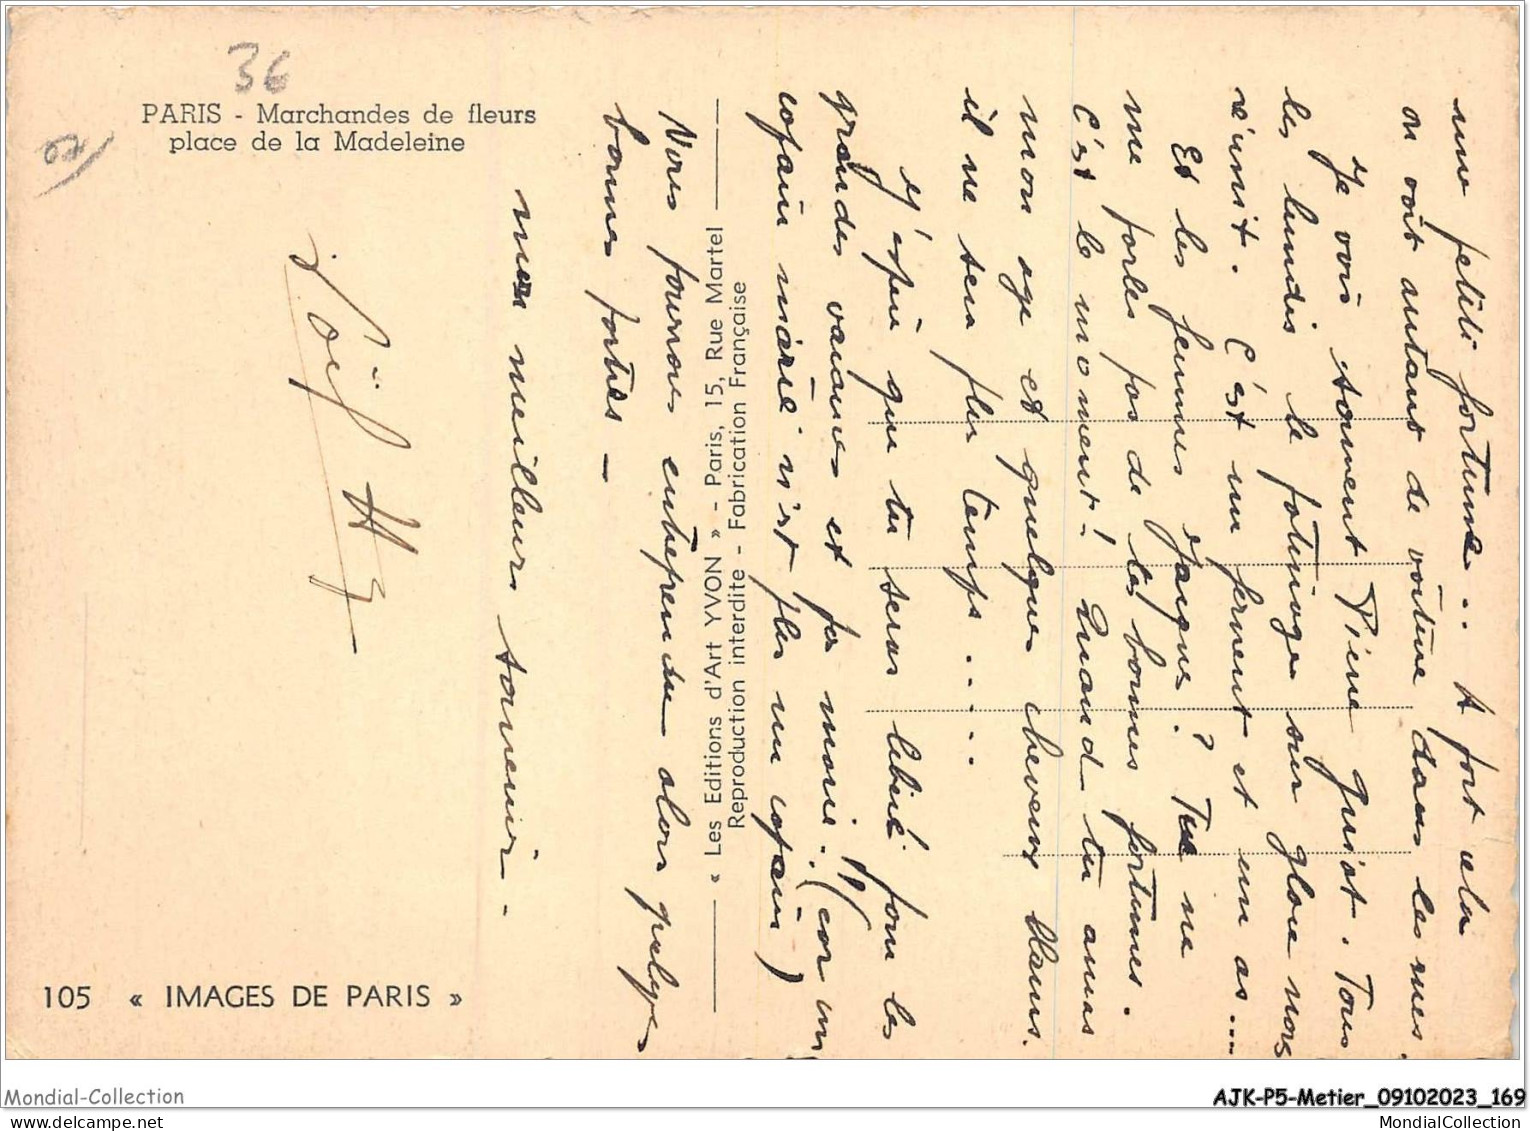 36
PARIS - Marchandes de fleurs
place de la Madeleine
une petite fortune.. A part cela
on voit autant de voiture dans les rues.
Je vois souvent Pierre Guiot. Tous
les lundis le patinage sur glace nous
réunit. C'est un fervent et un as....
Et les femmes Jacques? Tu ne
me parles pas de tes bonnes fortunes.
C'est le moment! Quand tu auras
mon age et quelques cheveux blancs.
il ne sera plus temps.....
J'espère que tu seras libéré pour les
grandes vacances et pas marié!! (car un
copain marié n'est plus un copain)
Nous pourrons entreprendre alors quelques
bonnes sorties -
mon meilleurs souvenir.
« Les Editions d'Art YVON » - Paris, 15, Rue Martel
Reproduction interdite - Fabrication Française
105 « IMAGES DE PARIS »
Mondial-Collection
AJK-P5-Metier_09102023_169
MondialCollection